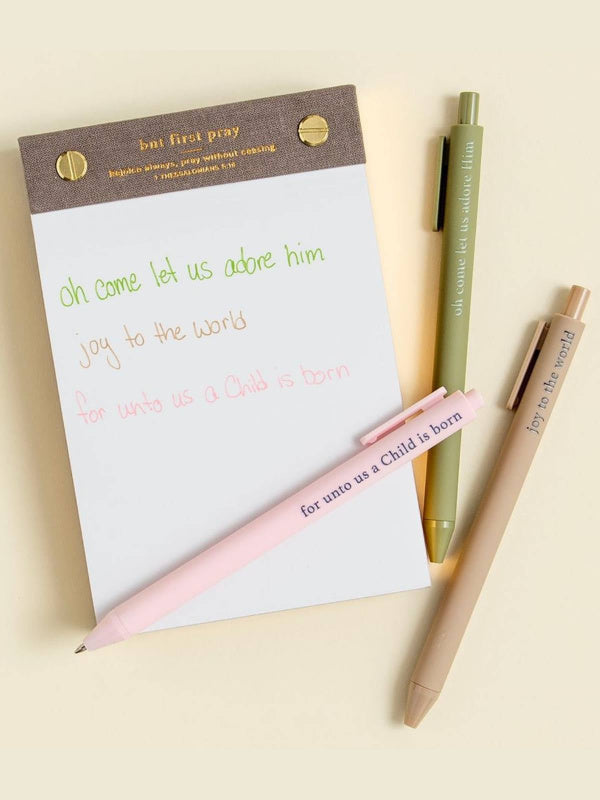 but first pray
Rejoice always, pray without ceasing.
1 THESSALONIANS 5:16
oh come let us adore him
joy to the world
for unto us a Child is born
oh come let us adore Him
joy to the world
for unto us a Child is born